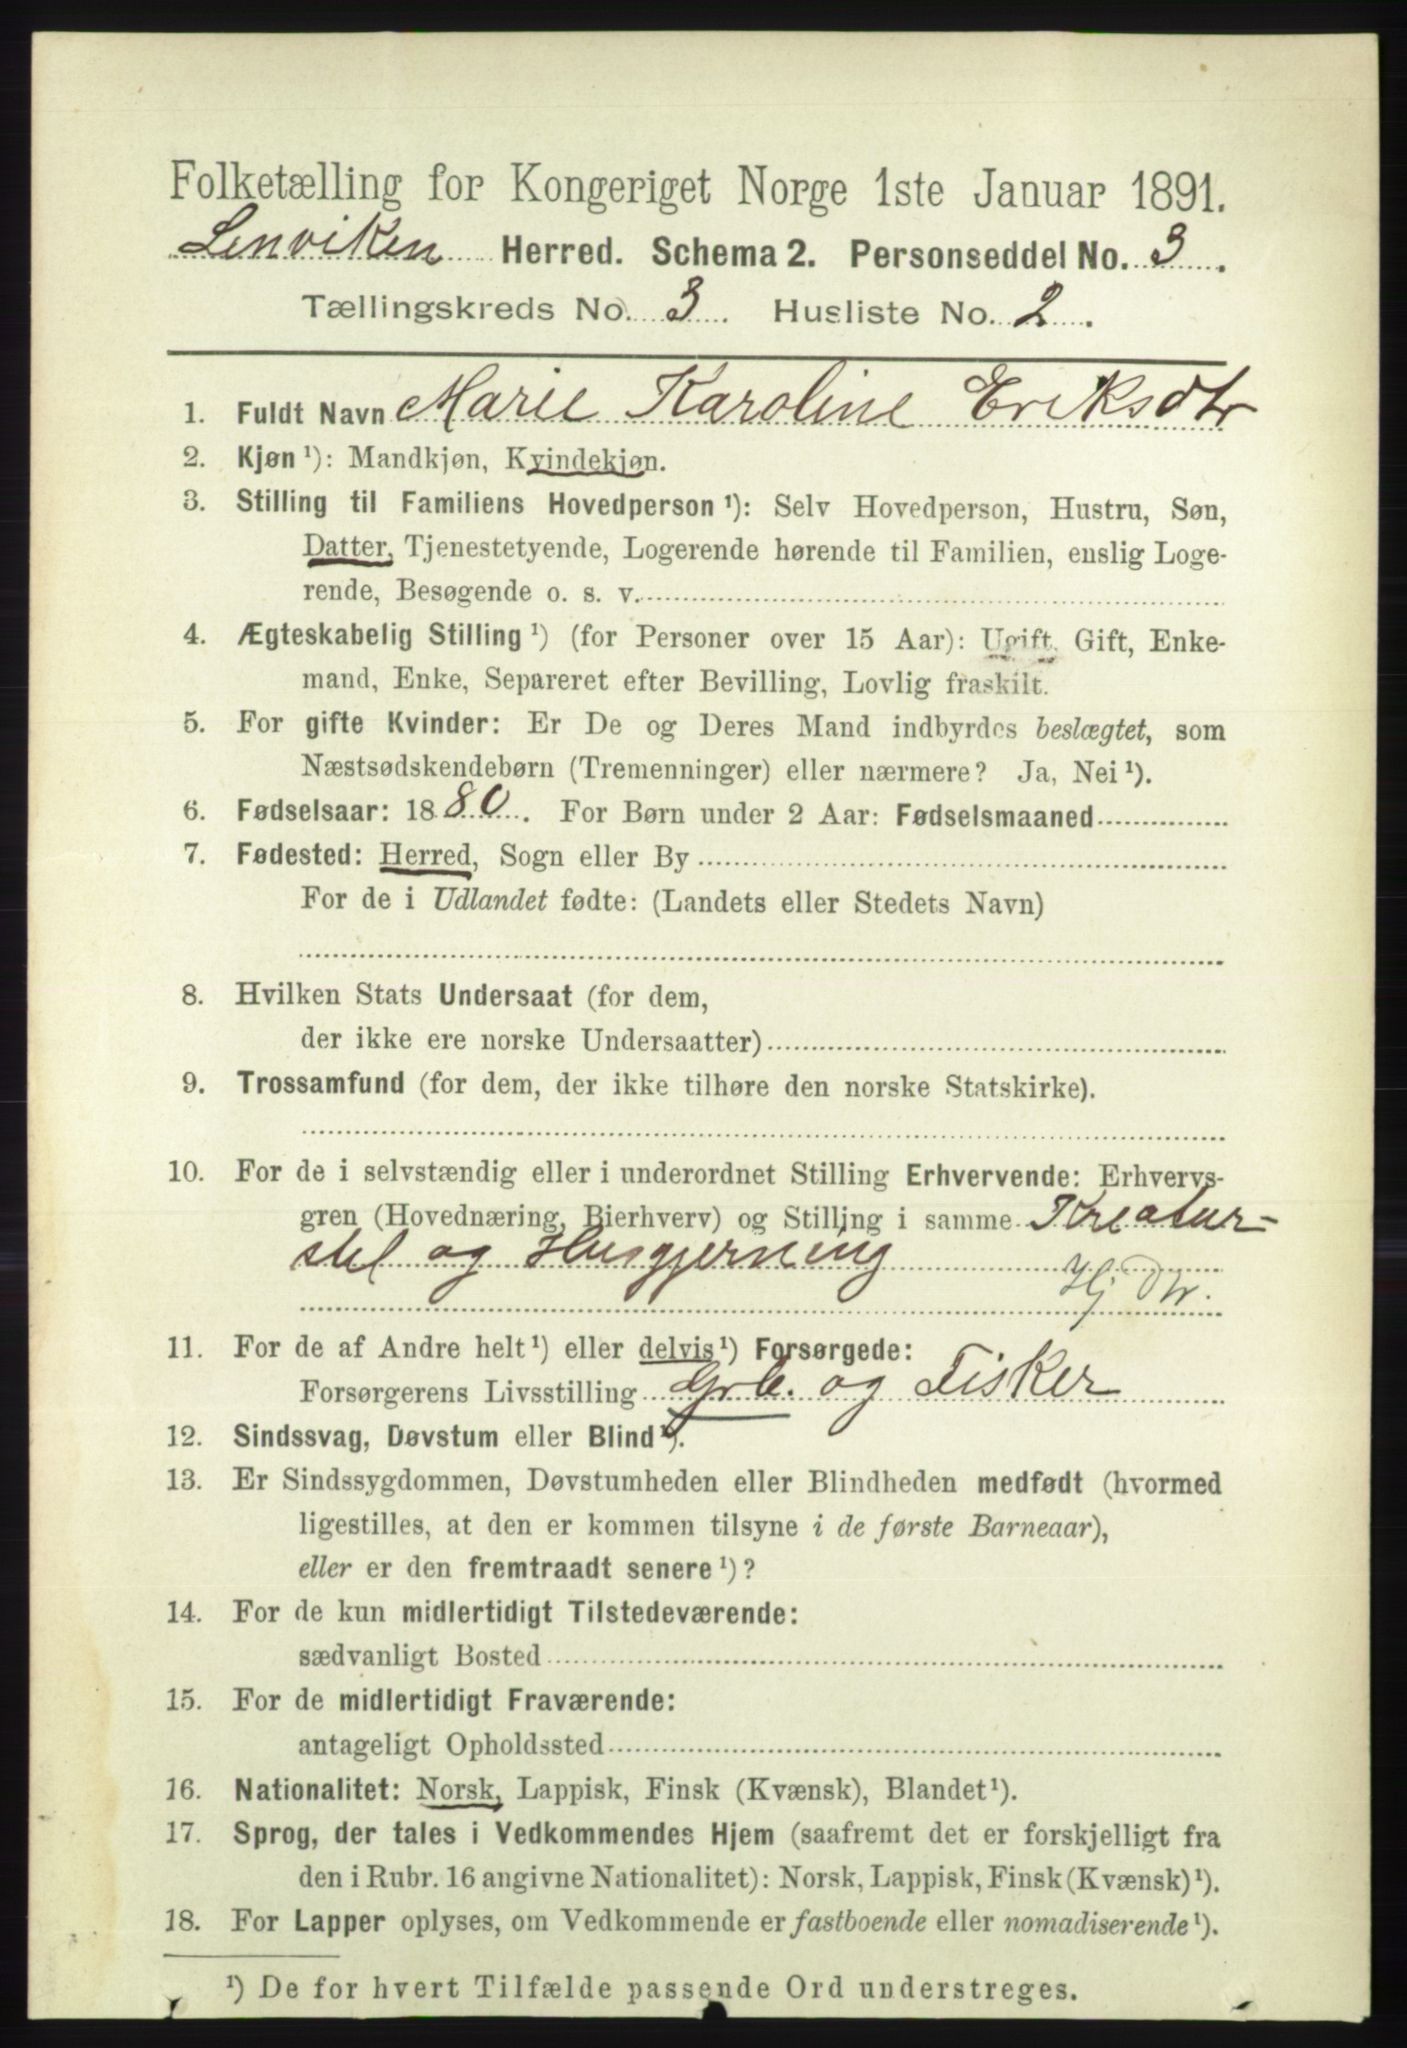 Folketælling for Kongeriget Norge 1ste Januar 1891.
Lenviken Herred. Schema 2. Personseddel No. 3.
Tællingskreds No. 3. Husliste No. 2.
1. Fuldt Navn Marie Karoline Eriksdtr
2. Kjøn ¹): Mandkjøn, Kvindekjøn.
3. Stilling til Familiens Hovedperson ¹): Selv Hovedperson, Hustru, Søn,
Datter, Tjenestetyende, Logerende hørende til Familien, enslig Loge-
rende, Besøgende o. s. v.
4. Ægteskabelig Stilling ¹) (for Personer over 15 Aar): Ugift, Gift, Enke-
mand, Enke, Separeret efter Bevilling, Lovlig fraskilt.
5. For gifte Kvinder: Er De og Deres Mand indbyrdes beslægtet, som
Næstsødskendebørn (Tremenninger) eller nærmere? Ja, Nei ¹).
6. Fødselsaar: 1880. For Børn under 2 Aar: Fødselsmaaned
7. Fødested: Herred, Sogn eller By
For de i Udlandet fødte: (Landets eller Stedets Navn)
8. Hvilken Stats Undersaat (for dem,
der ikke ere norske Undersaatter)
9. Trossamfund (for dem, der ikke tilhøre den norske Statskirke).
10. For de i selvstændig eller i underordnet Stilling Erhvervende: Erhvervs-
gren (Hovednæring, Bierhverv) og Stilling i samme Kreatur-
stel og Husgjerning
Hj Dtr.
11. For de af Andre helt ¹) eller delvis ¹) Forsørgede:
Forsørgerens Livsstilling Grb. og Fisker
12. Sindssvag, Døvstum eller Blind ¹).
13. Er Sindssygdommen, Døvstumheden eller Blindheden medfødt (hvormed
ligestilles, at den er kommen tilsyne i de første Barneaar),
eller er den fremtraadt senere ¹)?
14. For de kun midlertidigt Tilstedeværende:
sædvanligt Bosted
15. For de midlertidigt Fraværende:
antageligt Opholdssted
16. Nationalitet: Norsk, Lappisk, Finsk (Kvænsk), Blandet ¹).
17. Sprog, der tales i Vedkommendes Hjem (saafremt det er forskjelligt fra
den i Rubr. 16 angivne Nationalitet): Norsk, Lappisk, Finsk (Kvænsk) ¹).
18. For Lapper oplyses, om Vedkommende er fastboende eller nomadiserende ¹).
¹) De for hvert Tilfælde passende Ord understreges.